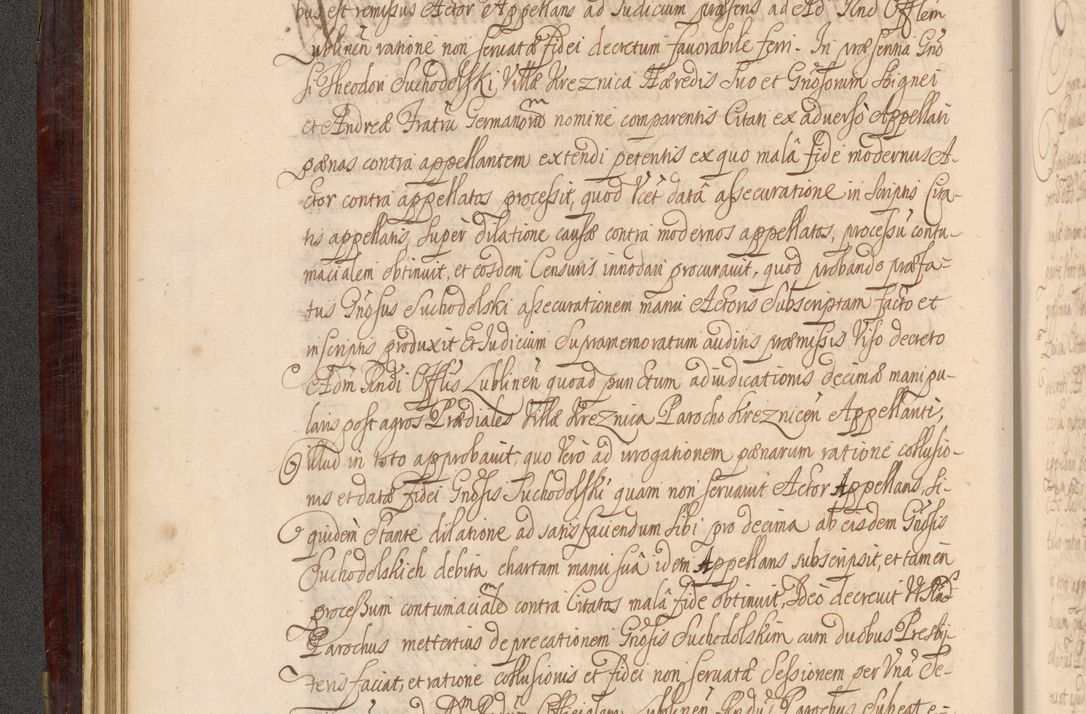 bus est remissus Actor Appellans ad Iudicium præsens ad Ad. Rnd Offlem
Lublinen ratione non servatæ fidei decretum favorabile ferri. In præsentia Gnō
si Theodori Suchodolski, Villæ Kreznica Hæredis Suo et Gnōsorum Zbignei
et Andreæ Fratrū Germanorū nomine comparentis Citati ex adverso Appellati
pænas contra appellantem extendi petentis ex quo malâ fide modernus A-
ctor contra appellatos processit, quod licet datâ assecuratione in Scriptis Cita-
tis appellatis, super dilatione causæ contra modernos appellatos, processū contu-
macialem obtinuit, et eosdem Censuris innodari procuravit, quod probando præfa-
tus Gnōsus Suchodolski assecurationem manu Actoris Subscriptam facto et
in scriptis produxit Et Iudicium Supramemoratum auditis præmissis Viso decreto
Adm Rndi Offlis Lublinen quoad punctum adiudicationis decimæ manipu-
laris post agros Prædiales Villæ Kreznica Parocho Kreznicēn Appellanti,
illud in toto approbavit, quo Vero ad irrogationem pænarum ratione collusio-
nis et datæ fidei Gnōsis Suchodolski quam non servavit Actor Appellans, si-
quidem Stante dilatione ad satisfaciendum sibi pro decima ab eisdem Gnōsis
Suchodolskich debita chartam manu suâ idem Appellans subscripsit, et tamen
processum contumaciale contra Citatos malâ fide obtinuit, Ideo decrevit Ut Rnd
Parochus mettertius deprecationem Gnōsis Suchodolskim cum duobus Presbi-
teris faciat, et ratione collusionis et fidei non servatæ Sessionem per Unā Se-
ad Adm Rndum Officialem Lublinen Rndus Parochus Subeat e-